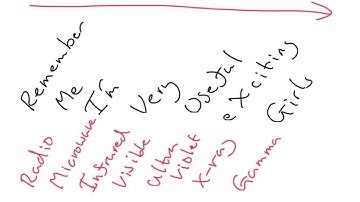 Remember Me I'm Very Useful eXciting Girls
Radio Microwave Infrared Visible Ultra Violet X-ray Gamma